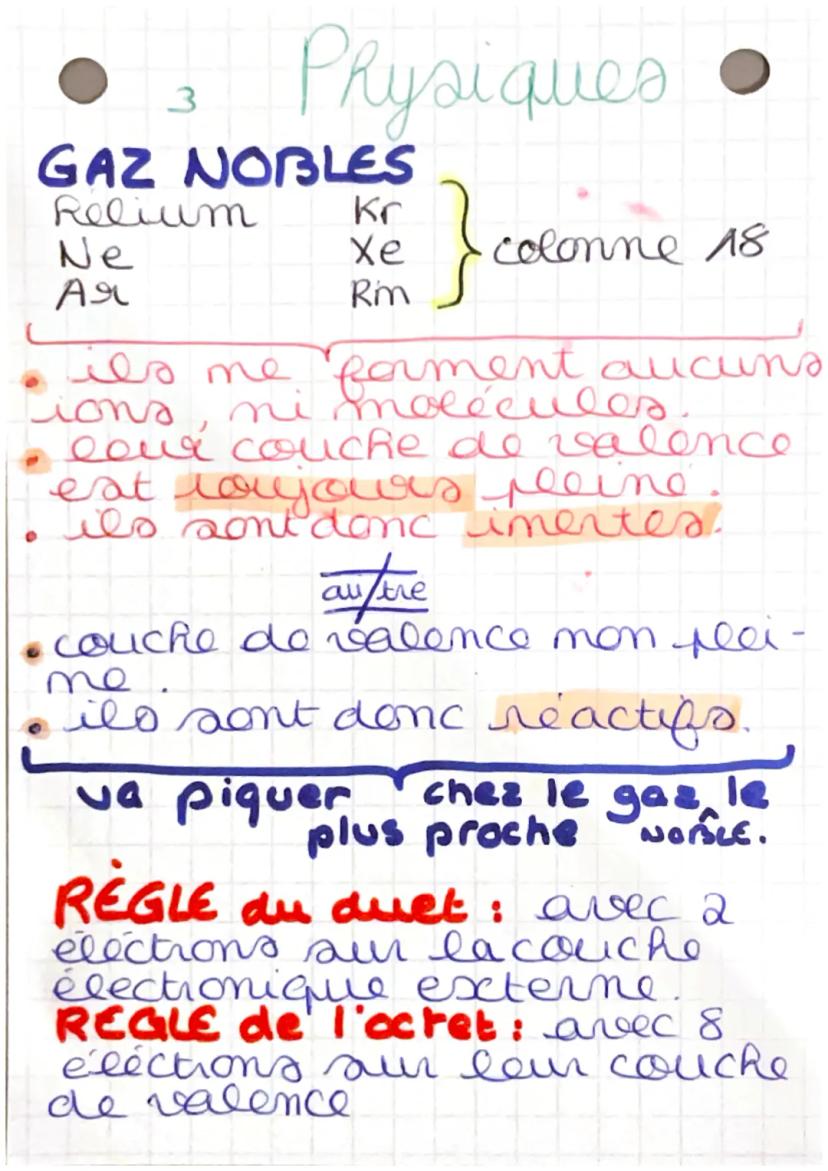 3 Physiques
GAZ NOBLES
Hélium Kr
Ne Xe } colonne 18
Ar Rn
• ils ne forment aucuns
ions, ni molécules.
• leur couche de valence
est toujours pleine.
• ils sont donc inertes.
autre
• couche de valence non plei-
ne.
• ils sont donc réactifs.
va piquer chez le gaz le
plus proche NOBLE.
RÈGLE du duet : avec 2
éléctrons sur la couche
électronique externe.
REGLE de l'octet : avec 8
éléctrons sur leur couche
de valence